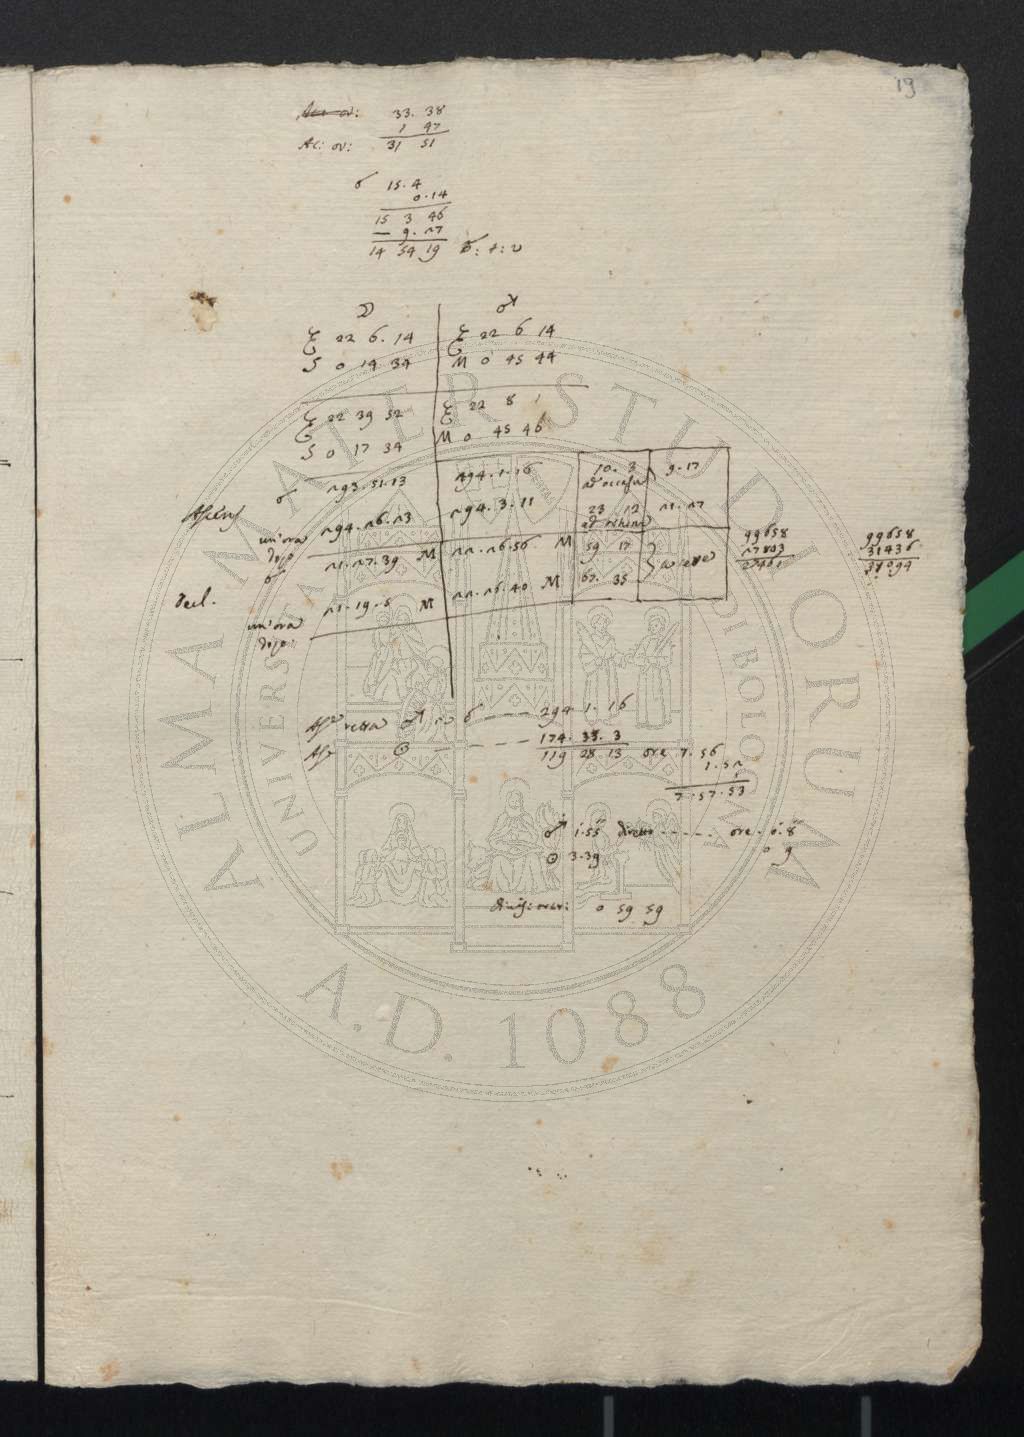 19
33. 38
1 47
Ac: ov: 31 51
☌ 15. 4
0. 14
15 3 46
9. 27
14 54 19 ☌: t: v
☽ ♂
♑ 22 6. 14 ♑ 22 6 14
S 0 14 34 M 0 45 44
♑ 22 39 52 ♑ 22 8 1
S 0 17 34 M 0 45 46
☌ 293. 51. 13 294. 1. 16 10. 3 9. 17
ad occasu
un'ora 294. 26. 23 294. 3. 11 23 12 21. 27
dopo
☌ 21. 27. 39 M 22. 26. 56 M 59 17
Decl. 21. 19. 6 M 22. 26. 40 M 62. 35
un'ora
dopo
99658
27803
27461
99658
31436
31094
Asc retta ♂ in ☌ 294 1. 16
Asc ☉ 174. 33. 3
119 28 13 ore 7. 56
1. 52
7. 57. 53
♂ 1. 55 ore. 0. 8
☉ 3. 39 0 9
0 59 59
ALMA MATER STUDIORUM
UNIVERSITÀ DI BOLOGNA
A.D. 1088